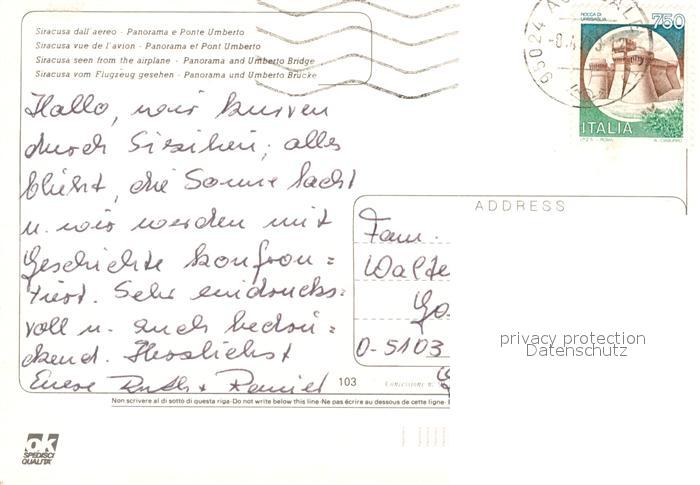 Siracusa dall'aereo - Panorama e Ponte Umberto
Siracusa vue de l'avion - Panorama et Pont Umberto
Siracusa seen from the airplane - Panorama and Umberto Bridge
Siracusa vom Flugzeug gesehen - Panorama und Umberto Brücke
ROCCA DI
URBISAGLIA
750
ITALIA
I.P.Z.S. - ROMA
95024
Hallo, wir kurven
durch Sizilien, alles
blüht, die Sonne lacht
u. wir werden mit
Geschichte konfron=
tiert. Sehr eindrucks=
voll u. auch bedrü=
ckend. Herzlichst
Eure Ruth + Daniel
ADDRESS
Fam.
Walte
D-5103
privacy protection
Datenschutz
103
Concessione n.
Non scrivere al di sotto di questa riga-Do not write below this line-Ne pas écrire au dessous de cette ligne-
ok
SPEDISCI
QUALITA'